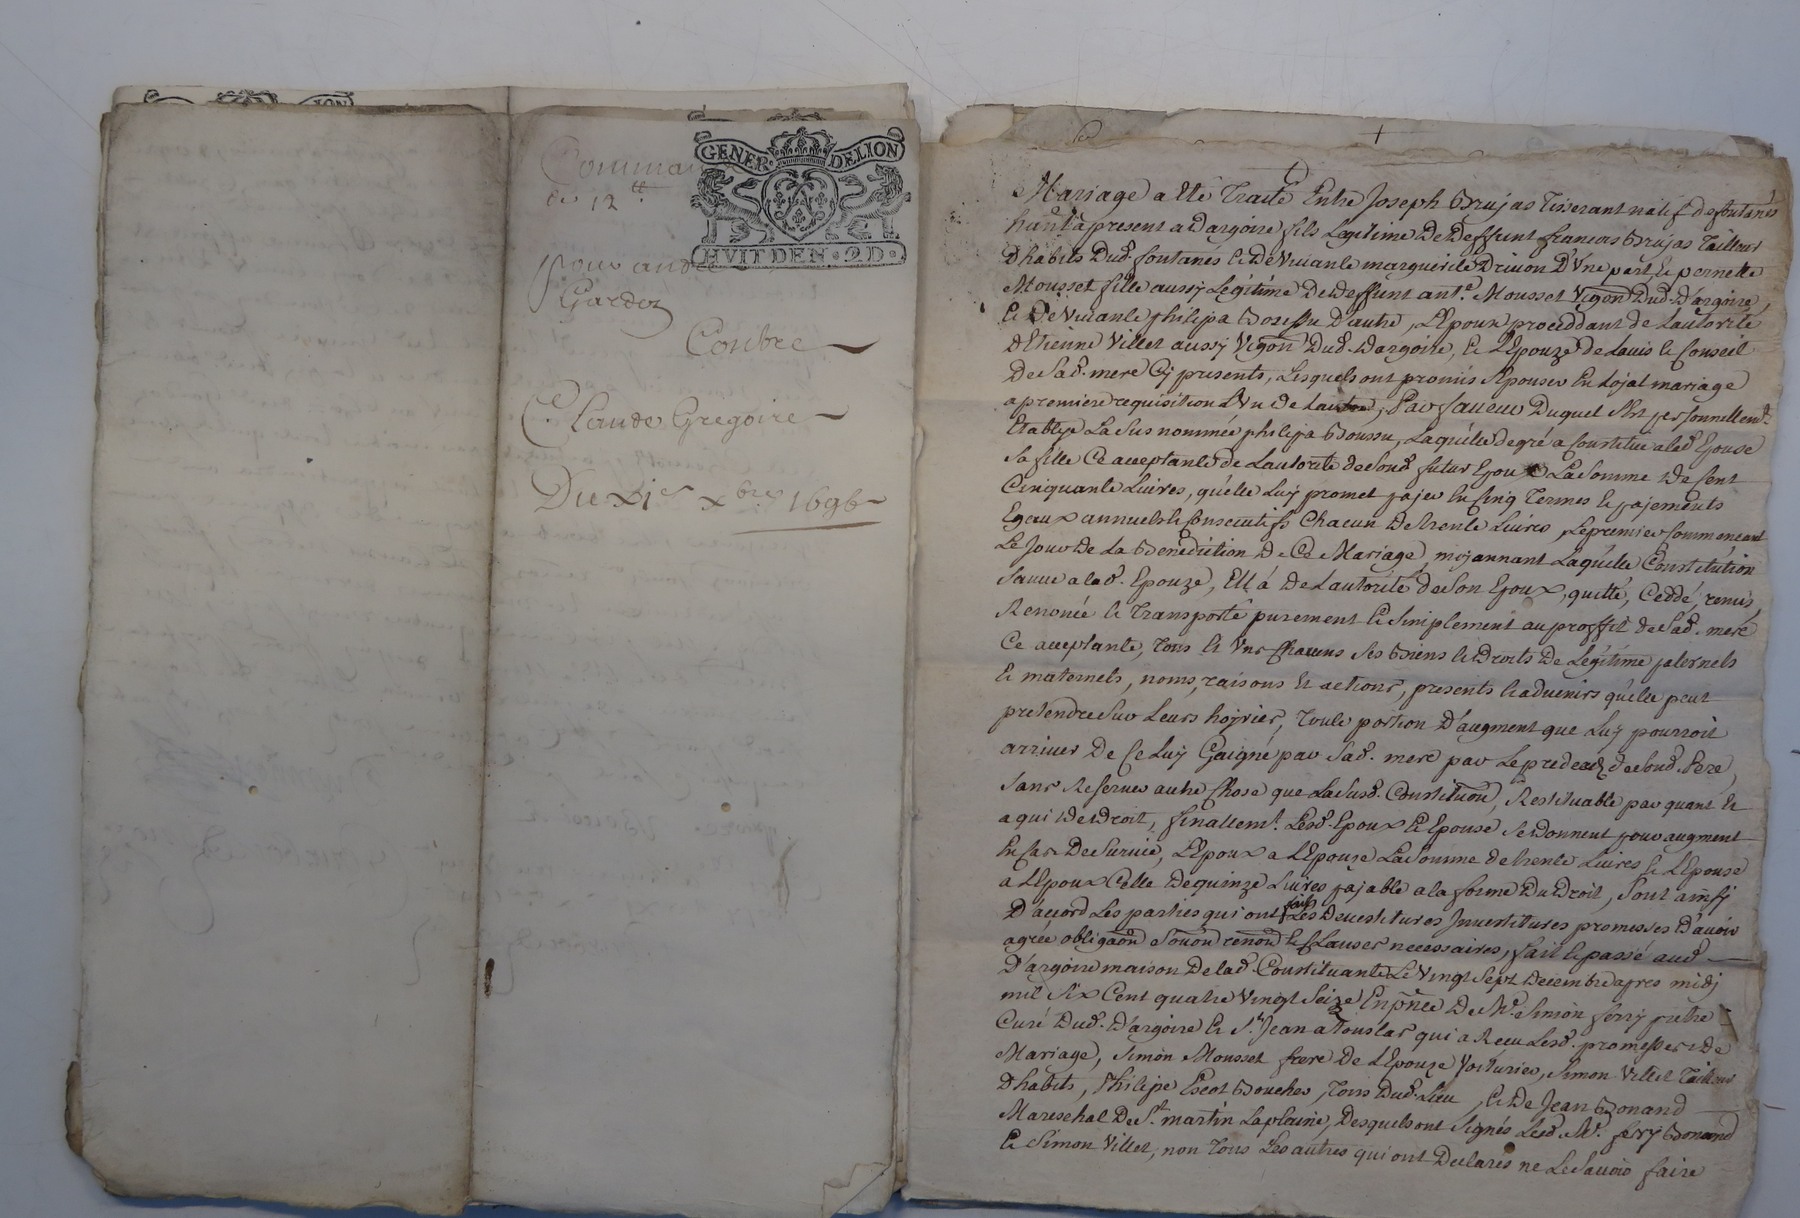 GENER. DELION
HVIT DEN. 2D.
Comman
de 12 tt
pour andré
Gardoz
Contre
Ce. Laude Gregoire
Du xi e xbre 1696
Mariage a êté Traité Entre Joseph Brujas Tisserant natif de fontanes
hant. àpresent a Dargoire fils Legitime De Deffunt francois Brujas Tailleur
D'habits Dud. fontanes et De Viuante marguerite Driuon D'Vne part Et pernette
Mousset fille aussy Legitime De Deffunt ant.e Mousset Vigon Dud. D'argoire,
Et De Viuante philipa Boussu D'autre, L'Epoux procedant de Lautorité
D'Etienne Villet aussy Vigon Dud. Dargoire, Et L'Epouze de Lauis et Conseil
De Sad. mere Cy presents, Lesquels ont promis S'Epouser En Lojal mariage
a premiere requisition L'Vn de Lautre, Par faueur Duquel S'Est personnellem.t
Etablye La Sus nommée philipa Boussu, Laquelle de gré a Constitué a lad. Epouse
Sa fille Ce acceptante de Lautorité de Sond. futur Epoux La Somme De Cent
Cinquante Liures, qu'elle Luy promet pajer En Cinq Termes et pajements
Egaux annuels et Consecutifs Chacun De trente Liures, Le premier Commencant
Le Jour De La Benediction De Ce Mariage, mojannant Laquelle Constitution
a lad. Epouze, Ell'à De Lautorité de Son Epoux, quitté, Ceddé, remis,
Renoncé et Transporté purement Et Simplement au proffit de Sad. mere
Ce acceptante, Tous Et Vns Chacuns Ses Biens et Droits De Legitime paternels
Et maternels, noms, raisons Et actions, presents et aduenirs qu'elle peut
pretendre Sur Leurs hojries, Toute portion D'augment que Luy pourroit
arriuer De Celuy Gaigné par Sad. mere par Le predecez de Sond. Pere,
Sans Reserues autre Chose que La Susd. Constitution, Restituable par quant Et
a qui De Droit, finallem.t Lesd. Epoux Et Epouse Se Donnent pour augment
En Cas De Suruie, L'Epoux a L'Epouze La Somme de trente Liures et L'Epouse
a L'Epoux Celle De quinze Liures pajable a la forme Du Droit, Sont ainsy
D'accord Les parties qui ont fait Les Deuestitures Inuestitures promesses D'auoir
agréé obligaon Soûon renon Et Clauses necessaires, fait Et passé aud.
D'argoire maison De lad. Constituante Le Vingt Sept Decembre apres midj
mil Six Cent quatre Vingt Seize En pñce De M.e Simon ferrÿ pretre
Curé Dud. D'argoire Et S.t Jean a Touslas qui a Receu Lesd. promesses De
Mariage, Simon Mousset frere De L'Epouze Voiturier, Simon Villet Tailleur
D'habits, Philipe Escot Boucher, Tous Dud. Lieu, Et De Jean Bonand
Mareschal De S.t martin La plaine, Desquels ont Signés Lesd. M.e ferÿ Bonand
Et Simon Villet, non Tous Les autres qui ont Declarés ne Le Sauoir faire